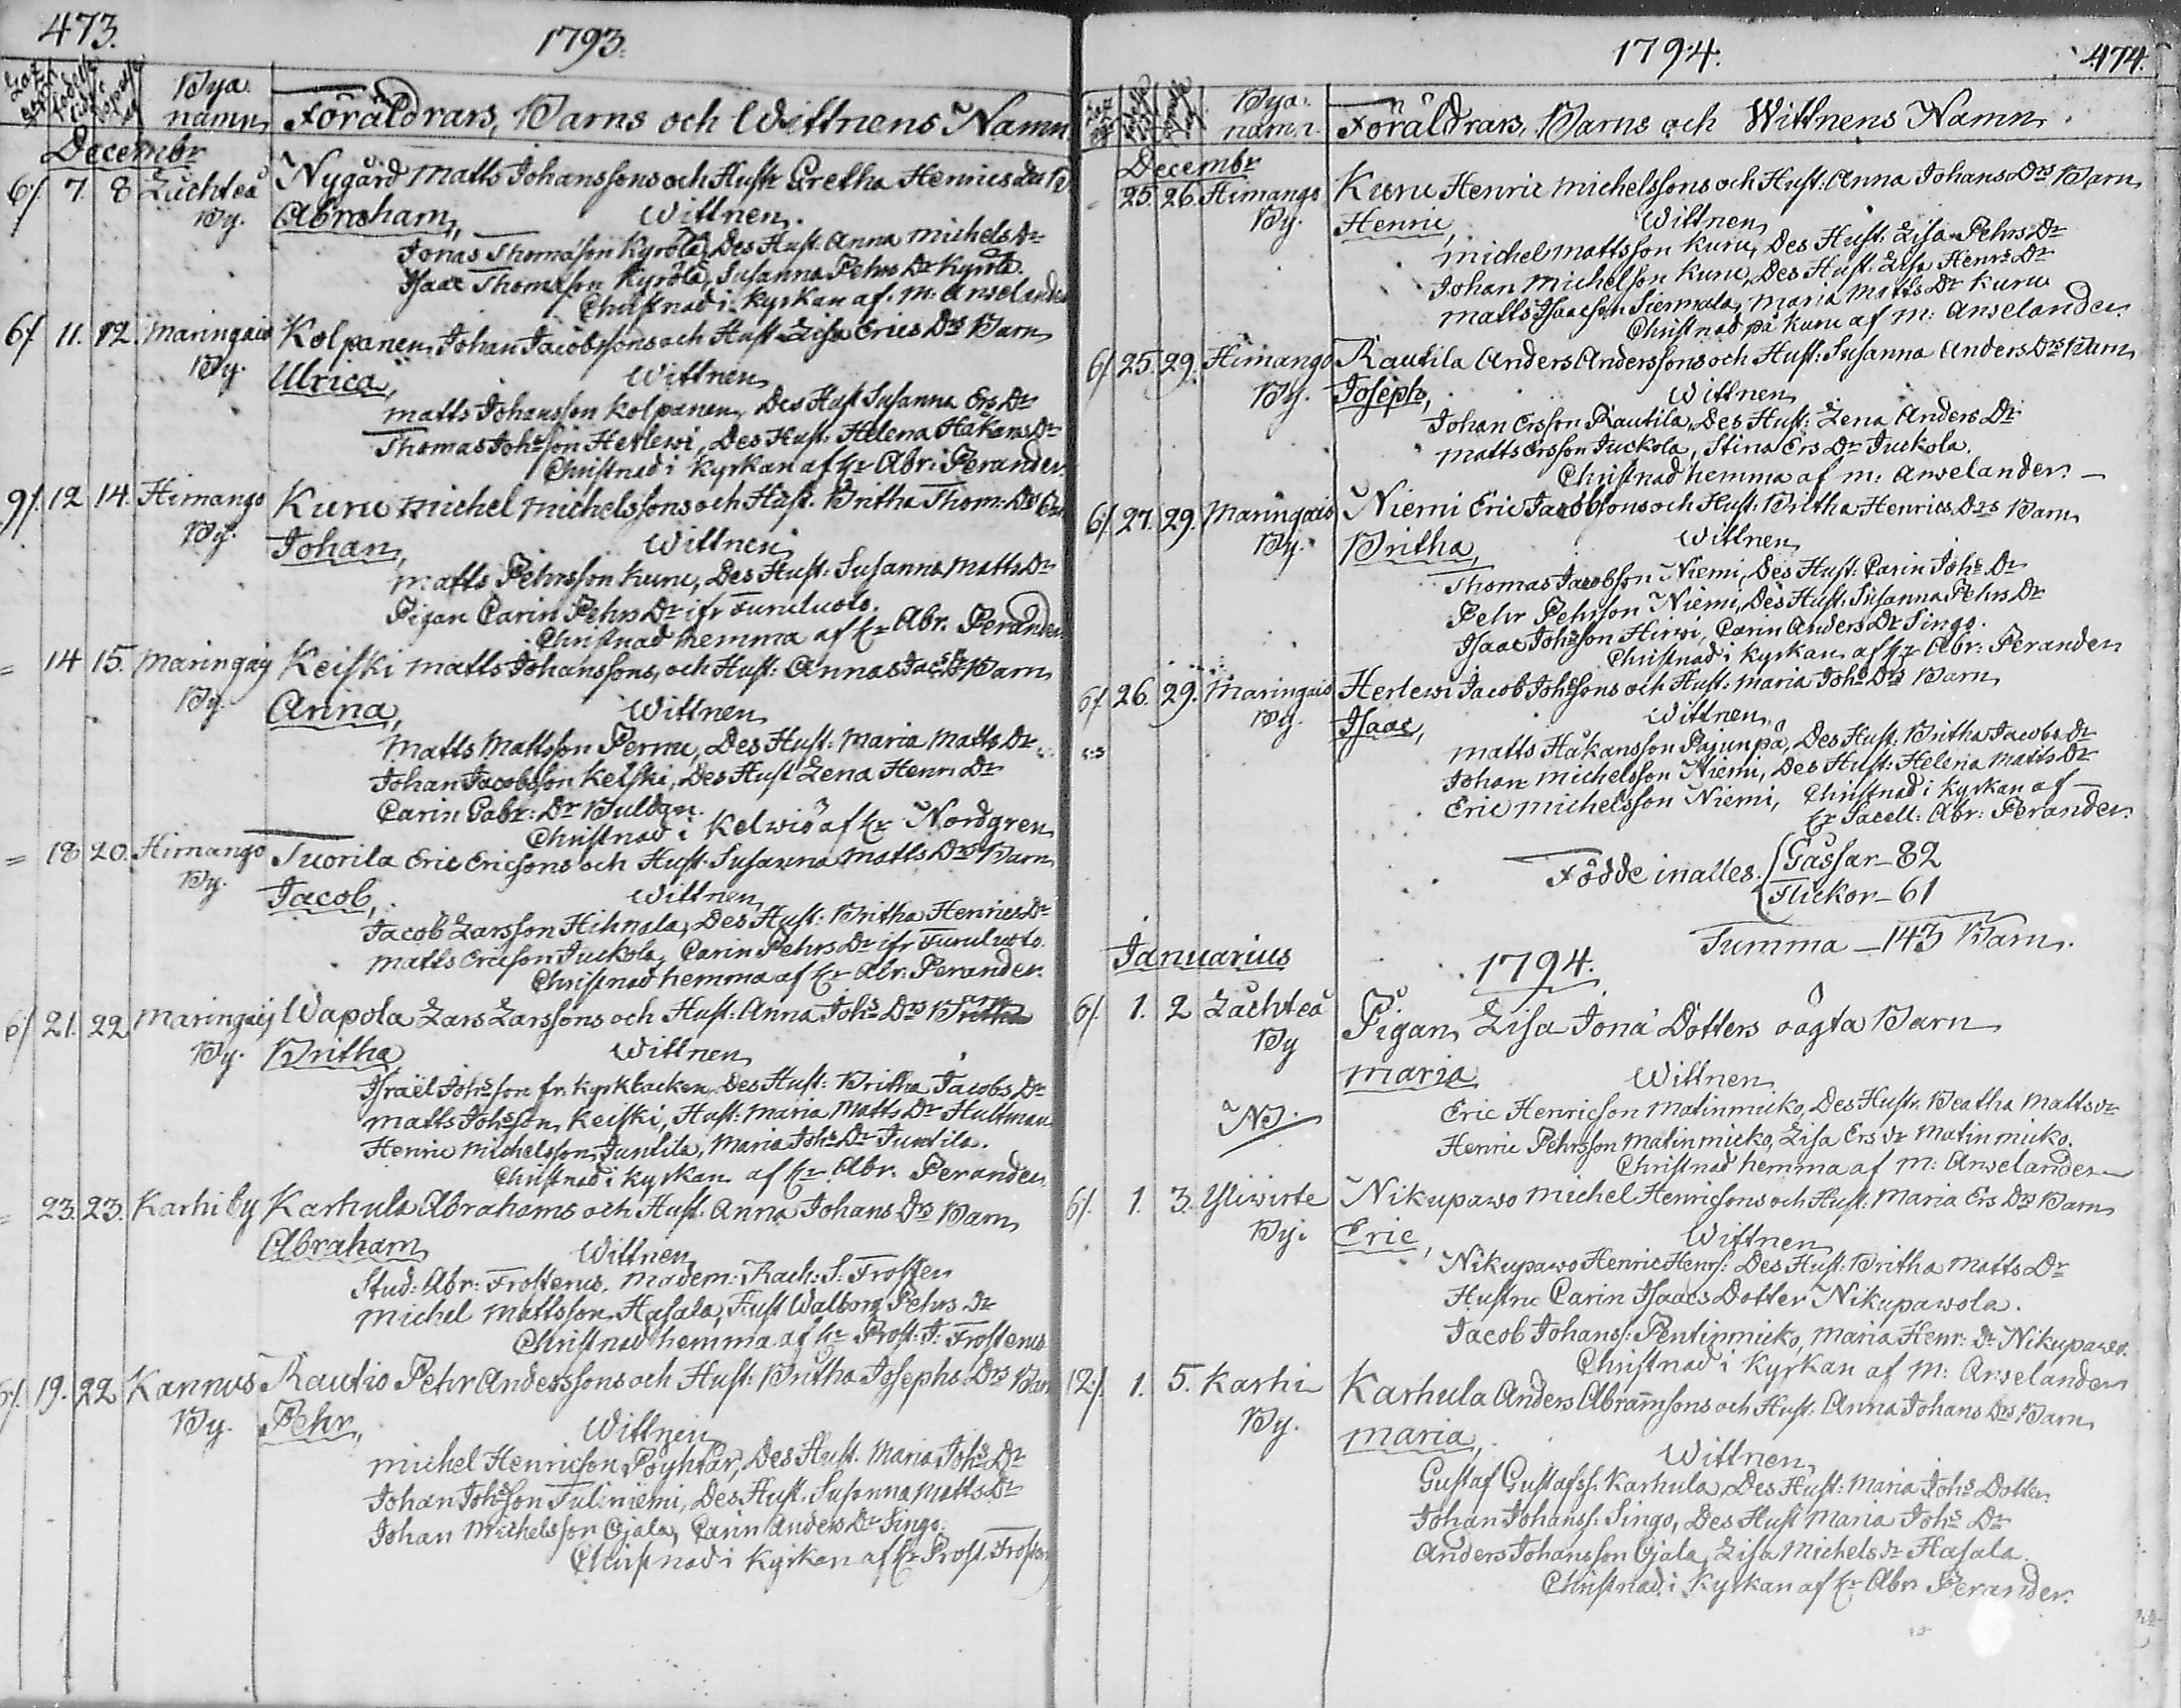 473.
1793.
Bya
namn
Föräldrars, Barns och Wittnens Namn
Decembr
6/. 7. 8 Låchteå Nygård Matts Johanssons och Hustr Gretha Henrics drs B
By. Abraham, Wittnen.
Jonas Thomasson Kyrölä, Des Hust. Anna Michels Dr
Isaac Thomasson Kyrölä, Susanna Pehrs Dr Kyrölä.
Christnad i Kyrkan af M: Anselander
6/. 11. 12. Maringais Kolpanen Johan Jacobssons och Hust Lisa Erics Drs Barn
By. Ulrica, Wittnen
Matts Johansson Kolpanen, Des Hust Susanna Ers Dr
Thomas Johsson Herlewi, Des Hust: Helena Håkans Dr
Christnad i Kyrkan af Hr Abr: Perander.
9/. 12 14. Himango Kuru Michel Michelssons och Hust. Britha Thom: Drs
By. Johan, Wittnen
Matts Pehrsson Kuru, Des Hust: Susanna Matts Dr
Pigan Carin Pehrs Dr ifr Furuluoto.
Christnad hemma af Hr Abr. Perander
= 14 15. Maringaij Keiski Matts Johanssons, och Hust: Annas Jacobs Barn
By. Anna, Wittnen
Matts Mattsson Perrni, Des Hust: Maria Matts Dr
Johan Jacobsson Keiski, Des Hust Lena Henr: Dr
Carin Gabr: Dr Buldan.
Christnad i Kelwiå af Hr Nordgren
= 18 20. Himango Tuorila Eric Ericsons och Hust. Susanna Matts Drs Barn
By. Jacob, Wittnen
Jacob Larsson Hihnala, Des Hust: Britha Henrics Dr
Matts Ericson Juckola, Carin Pehrs Dr ifr Furuluoto.
Christnad hemma af Hr Abr: Perander.
6/ 21. 22 Maringaij Wapola Lars Larssons och Hust: Anna Johs Drs Barn
By. Britha Wittnen
Israël Johsson fr. Kyrkbacken, Des Hust: Britha Jacobs Dr
Matts Johsson Keiski, Hust: Maria Matts Dr Hultman
Henric Michelsson Juntila, Maria Johs Dr Juntila.
Christnad i Kyrkan af Hr Abr. Perander.
23. 23. Karhi by Karhula Abrahams och Hust. Anna Johans Drs Barn
Abraham Wittnen
Stud: Abr: Frosterus, Madem: Rach: S: Froster
Michel Mattsson Hasala, Hust Walborg Pehrs Dr
Christnad hemma af Hr Prost. J: Frosterus
6/. 19. 22 Kannus Rautio Pehr Anderssons och Hust: Britha Josephs Drs Bar
By. Pehr, Wittnen
Michel Henricson Pöyhtär, Des Hust. Maria Johs Dr
Johan Johsson Tuliniemi, Des Hust. Susanna Matts Dr
Johan Michelsson Ojala, Carin Anders Dr Singo.
Christnad i Kyrkan af Hr Prost. Froster
1794.
474.
Bya.
namn.
Föräldrars, Barns och Wittnens Namn.
Decembr
= 25. 26. Himango Kuru Henric Michelssons och Hust. Anna Johans Drs Barn
By. Henric, Wittnen
Michel Mattsson Kuru, Des Hust. Lisa Pehrs Dr
Johan Michelson Kuru, Des Hust. Lisa Henrs Dr
Matts Isaacson Siermala, Maria Matts Dr Kuru
Christnad på Kuru af M: Anselander.
6/. 25. 29. Himango Rautila Anders Anderssons och Hust: Susanna Anders Drs Barn
By. Joseph, Wittnen
Johan Ersson Rautila, Des Hust: Lena Anders Dr
Matts Ersson Juckola, Stina Ers Dr Juckola.
Christnad hemma af M: Anselander. —
6/. 27. 29. Maringais Niemi Eric Jacobsons och Hust. Britha Henrics Drs Barn
By. Britha, Wittnen
Thomas Jacobson Niemi, Des Hust: Carin Johs Dr
Pehr Pehrson Niemi, Des Hust: Susanna Pehrs Dr
Isaac Johsson Hirwi, Carin Anders Dr Singo.
Christnad i Kyrkan af Hr Abr: Perander
6/. 26. 29. Maringais Herlewi Jacob Johssons och Hust: Maria Johs Drs Barn
By. Isaac, Wittnen
Matts Håkansson Pajunpä, Des Hust. Britha Jacobs Dr
Johan Michelsson Niemi, Des Hust: Helena Matts Dr
Eric Michelsson Niemi, Christnad i Kyrkan af
Hr Sacell: Abr: Perander.
Födde inalles. Gåssar — 82
Flickor — 61
Summa — 143 Barn.
Januarius
1794.
6/. 1. 2 Låchteå Pigan Lisa Jona Dotters oägta Barn
By Maria Wittnen
NB.
Eric Henricson Matinmicko, Des Hustr. Beatha Matts dr
Henric Pehrsson Matinmicko, Lisa Ers dr Matinmicko.
Christnad hemma af M: Anselander —
6/. 1. 3. Yliwirte Nikupawo Michel Henricsons och Hust: Maria Ers Drs Barn
By. Eric, Wittnen
Nikupawo Henric Henrs: Des Hust: Britha Matts Dr
Hustru Carin Isaacs Dotter Nikupawola.
Jacob Johanss: Pentinmicko, Maria Henr: dr Nikupawo.
Christnad i Kyrkan af M: Anselander
12/. 1. 5. Karhi Karhula Anders Abramsons och Hust: Anna Johans Drs Barn
By. Maria, Wittnen
Gustaf Gustafss. Karhula, Des Hust: Maria Johs Dotter.
Johan Johanss. Singo, Des Hust Maria Johs Dr
Anders Johansson Ojala, Lisa Michels dr Hasala.
Christnad i Kyrkan af Hr Abr Perander.